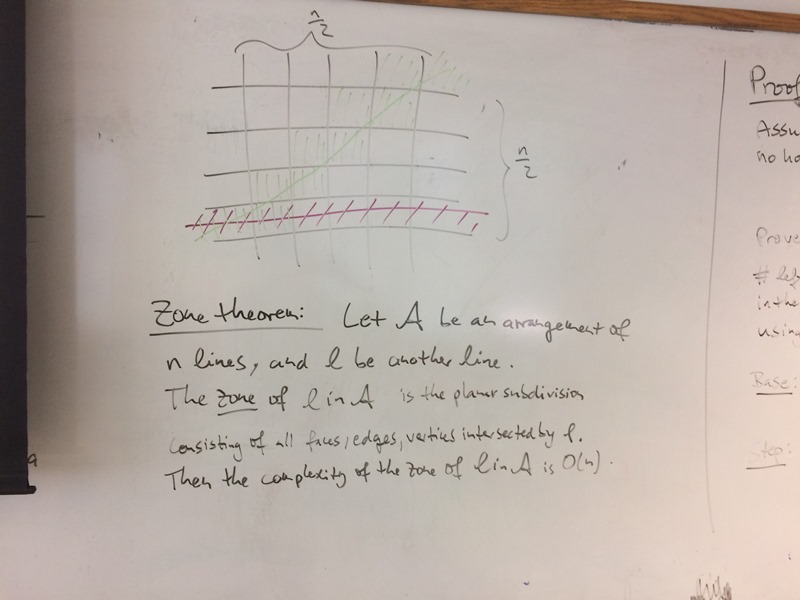 n/2
n/2
Zone theorem: Let A be an arrangement of
n lines, and l be another line.
The zone of l in A is the planar subdivision
consisting of all faces, edges, vertices intersected by l.
Then the complexity of the zone of l in A is O(n).
Proof
Assu
no ho
Prove
#
in the
using
Base:
Step: